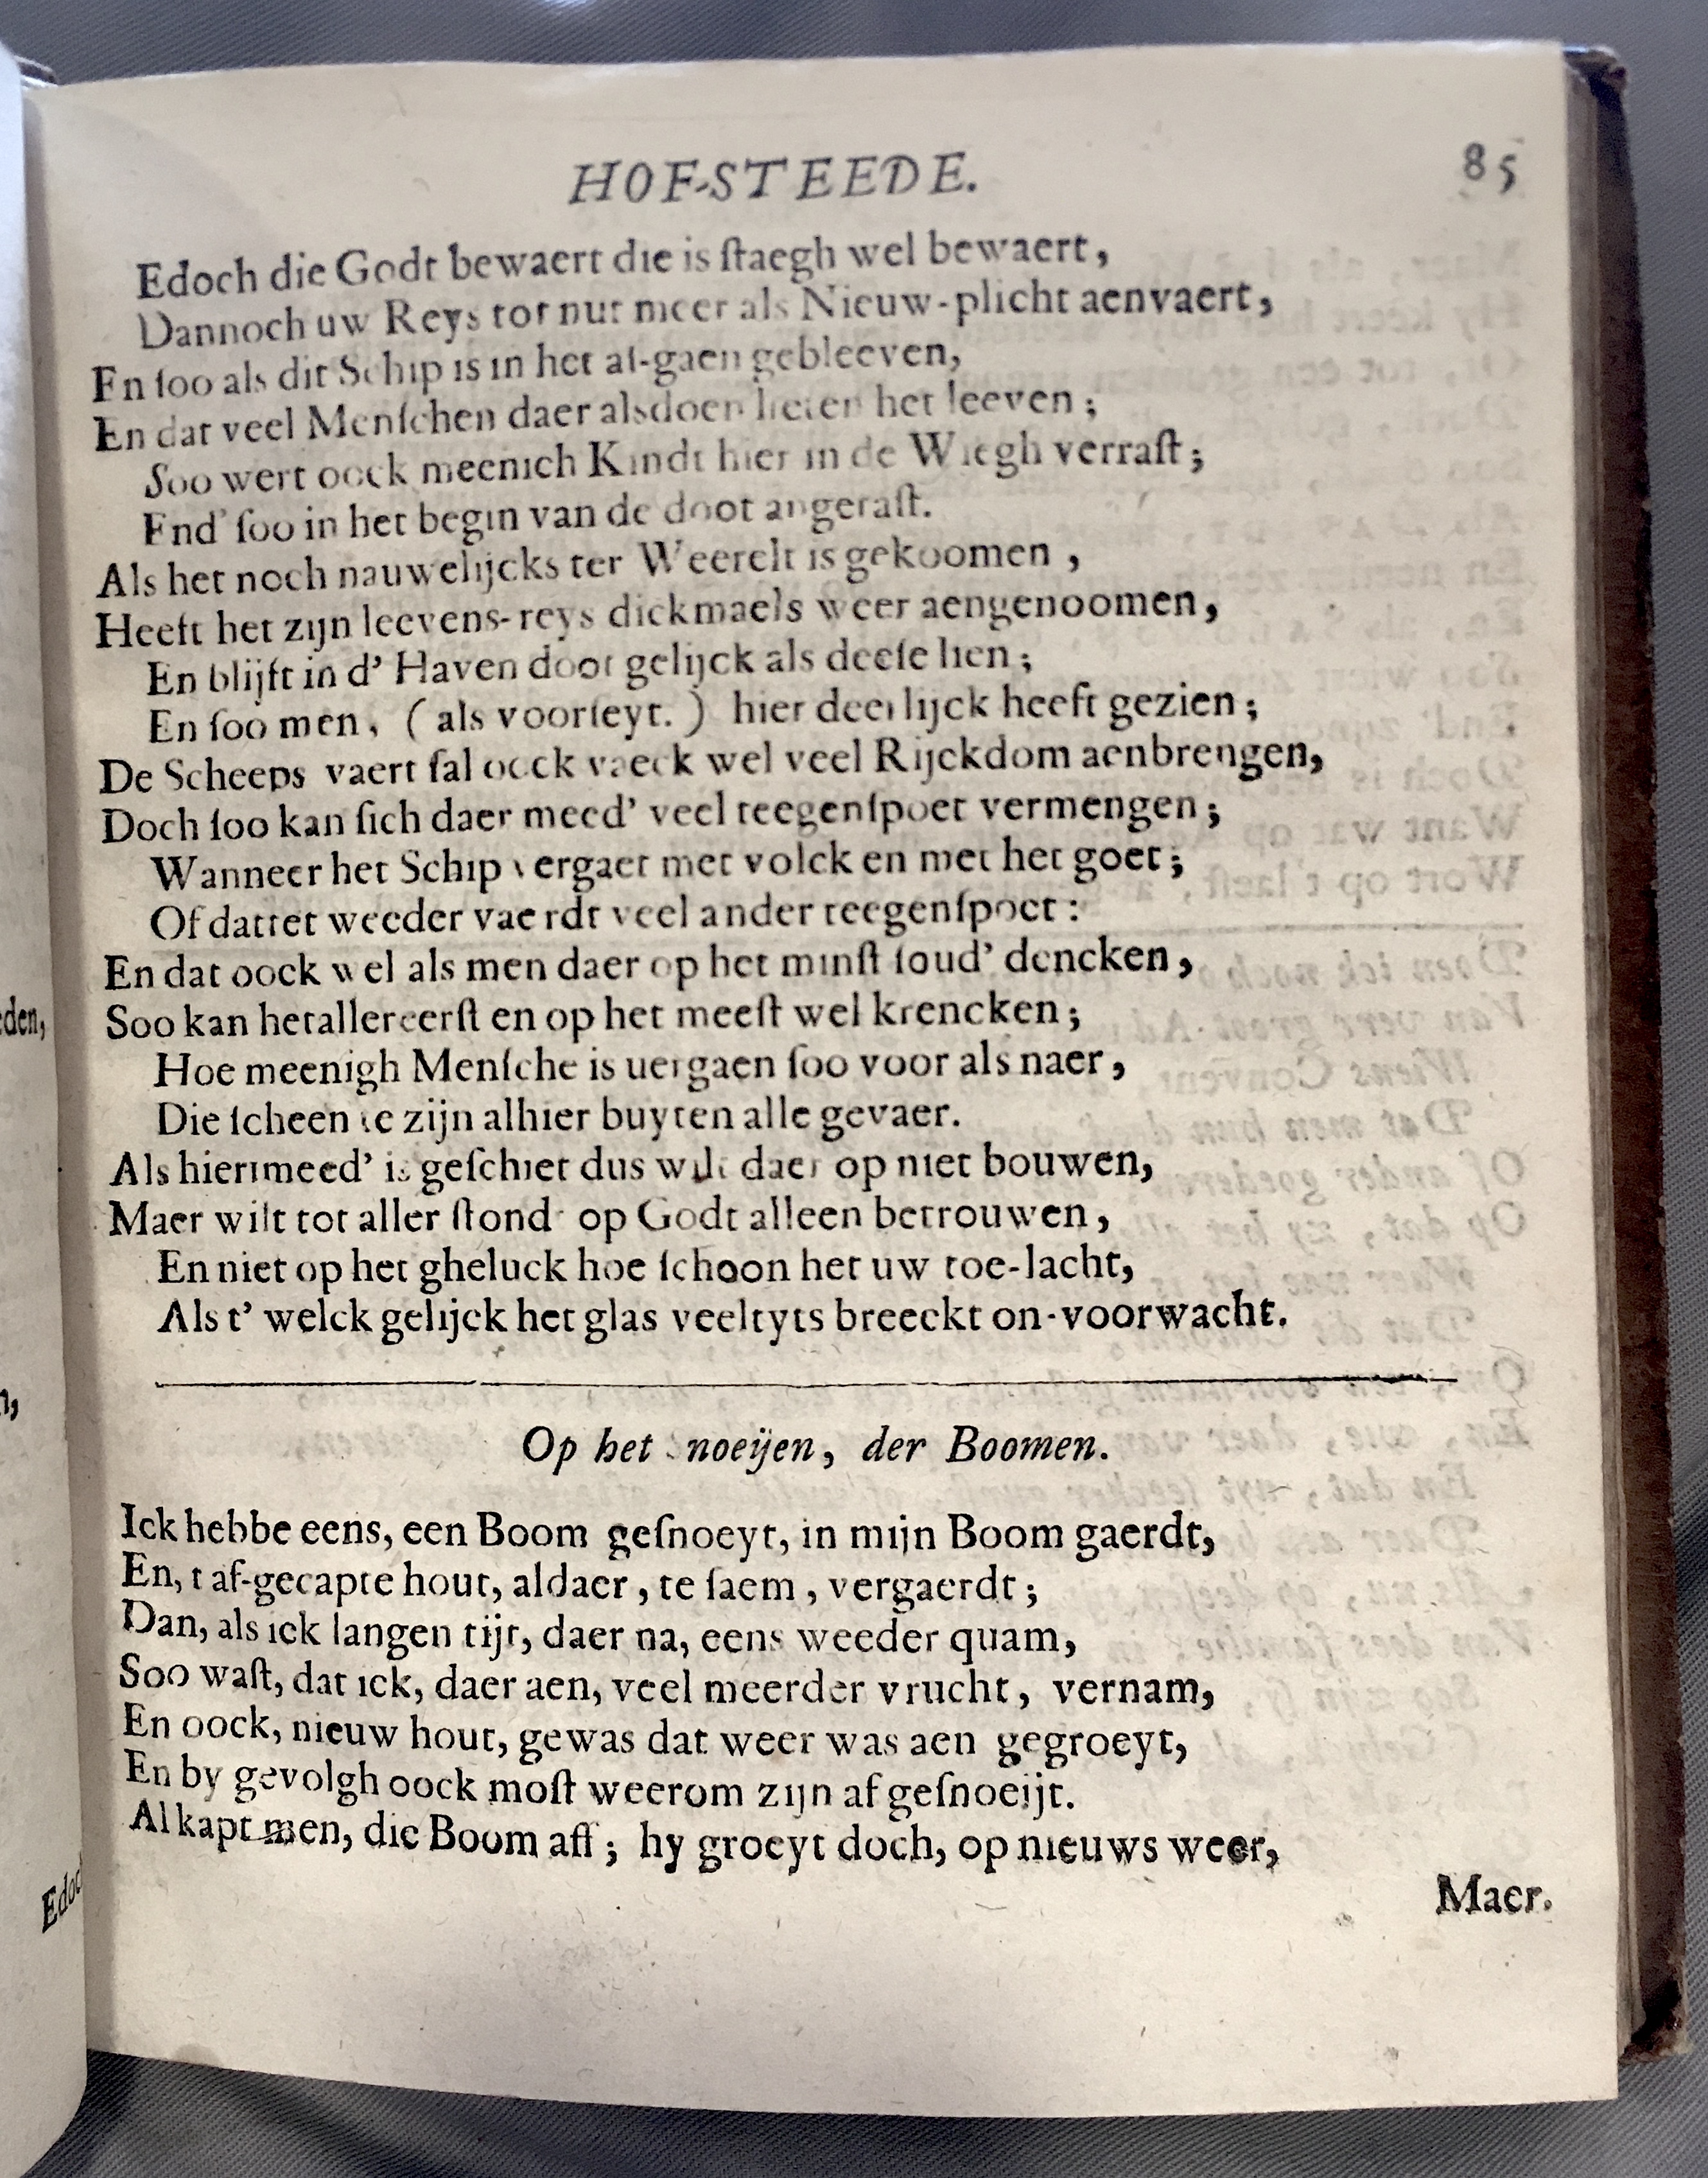 HOF-STEEDE. 85
Edoch die Godt bewaert die is ſtaegh wel bewaert,
Dannoch uw Reys tot nut meer als Nieuw-plicht aenvaert,
En ſoo als dit Schip is in het af-gaen gebleeven,
En dat veel Menſchen daer alsdoen lieten het leeven;
Soo wert oock meenich Kindt hier in de Wiegh verraſt;
End' ſoo in het begin van de doot angeraſt.
Als het noch nauwelijcks ter Weerelt is gekoomen,
Heeft het zijn leevens-reys dickmaels weer aengenoomen,
En blijft in d' Haven doot gelijck als deeſe lien;
En ſoo men, (als voorſeyt.) hier deerlijck heeft gezien;
De Scheeps vaert ſal oock vaeck wel veel Rijckdom aenbrengen,
Doch ſoo kan ſich daer meed' veel teegenſpoet vermengen;
Wanneer het Schip vergaet met volck en met het goet;
Of dattet weeder vaerdt veel ander teegenſpoet:
En dat oock wel als men daer op het minſt ſoud' dencken,
Soo kan hetallereerſt en op het meeſt wel krencken;
Hoe meenigh Menſche is uergaen ſoo voor als naer,
Die ſcheen te zijn alhier buyten alle gevaer.
Als hiermeed' is geſchiet dus wilt daer op niet bouwen,
Maer wilt tot aller ſtond' op Godt alleen betrouwen,
En niet op het gheluck hoe ſchoon het uw toe-lacht,
Als t' welck gelijck het glas veeltyts breeckt on-voorwacht.
Op het noeijen, der Boomen.
Ick hebbe eens, een Boom geſnoeyt, in mijn Boom gaerdt,
En, t af-gecapte hout, aldaer, te ſaem, vergaerdt;
Dan, als ick langen tijt, daer na, eens weeder quam,
Soo waſt, dat ick, daer aen, veel meerder vrucht, vernam,
En oock, nieuw hout, gewas dat weer was aen gegroeyt,
En by gevolgh oock moſt weerom zijn af geſnoeijt.
Al kapt men, die Boom aff; hy groeyt doch, op nieuws weer,
Maer.
den,
n,
Edoch